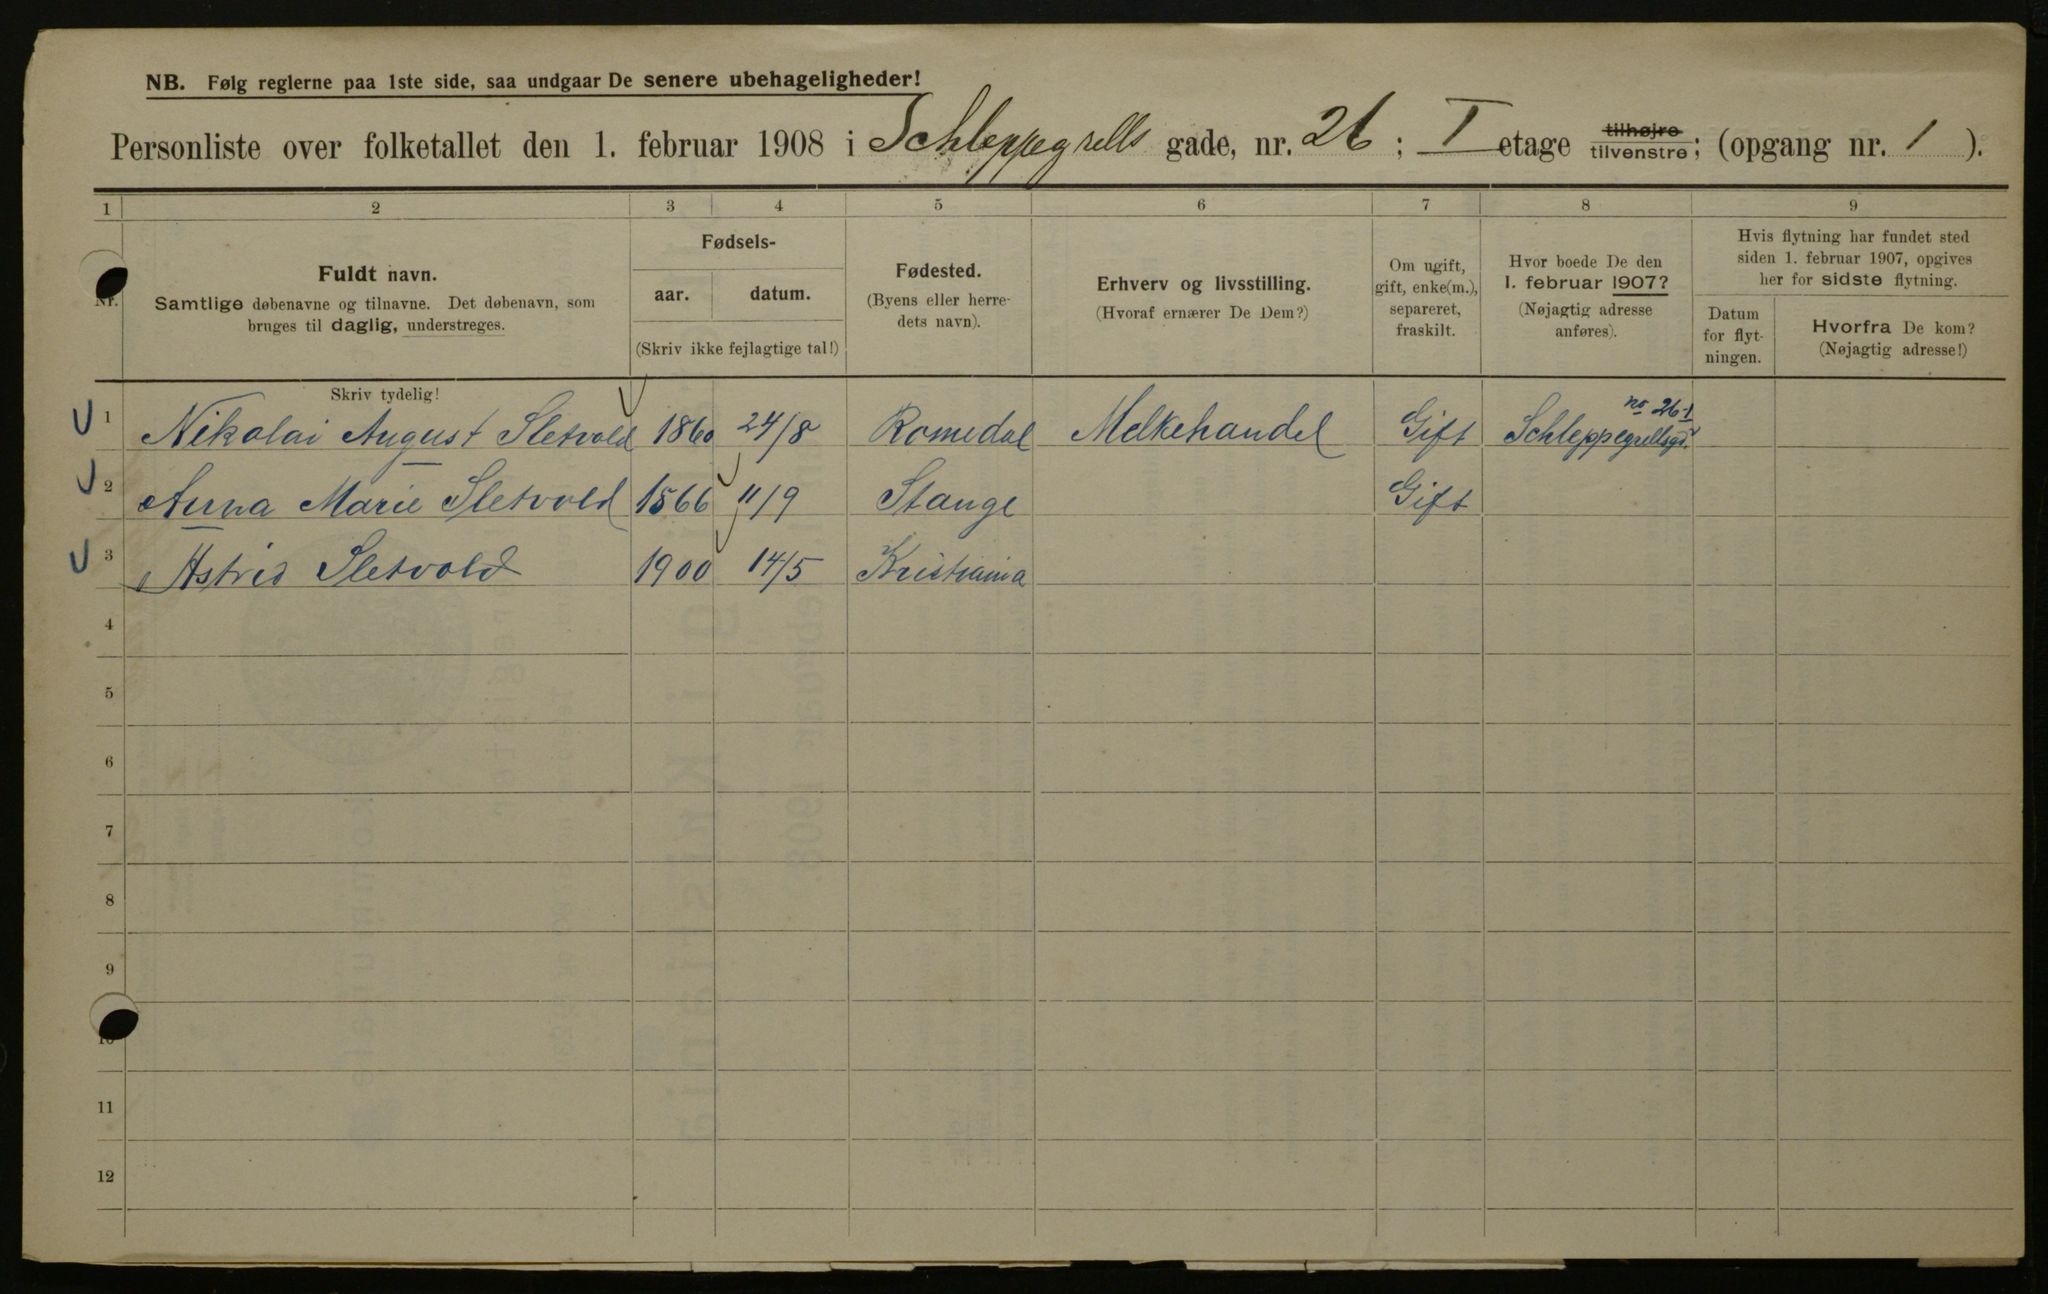 NB. Følg reglerne paa 1ste side, saa undgaar De senere ubehageligheder!
Personliste over folketallet den 1. februar 1908 i Schleppegrells gade, nr. 26 ; I etage tilhøjre tilvenstre; (opgang nr. 1 ).
1 2 3 4 5 6 7 8 9
Nr.
Fuldt navn.
Samtlige døbenavne og tilnavne. Det døbenavn, som
bruges til daglig, understreges.
Fødsels-
aar. datum.
(Skriv ikke fejlagtige tal!)
Fødested.
(Byens eller herre-
dets navn).
Erhverv og livsstilling.
(Hvoraf ernærer De Dem?)
Om ugift,
gift, enke(m.),
separeret,
fraskilt.
Hvor boede De den
1. februar 1907?
(Nøjagtig adresse
anføres).
Hvis flytning har fundet sted
siden 1. februar 1907, opgives
her for sidste flytning.
Datum
for flyt-
ningen.
Hvorfra De kom?
(Nøjagtig adresse!)
Skriv tydelig!
1 Nikolai August Sletvold 1860 24/8 Romedal Melkehandel Gift Schleppegrellsgd. no 26 I
2 Anna Marie Sletvold 1866 11/9 Stange Gift
3 Astrid Sletvold 1900 14/5 Kristiania
4
5
6
7
8
9
10
11
12